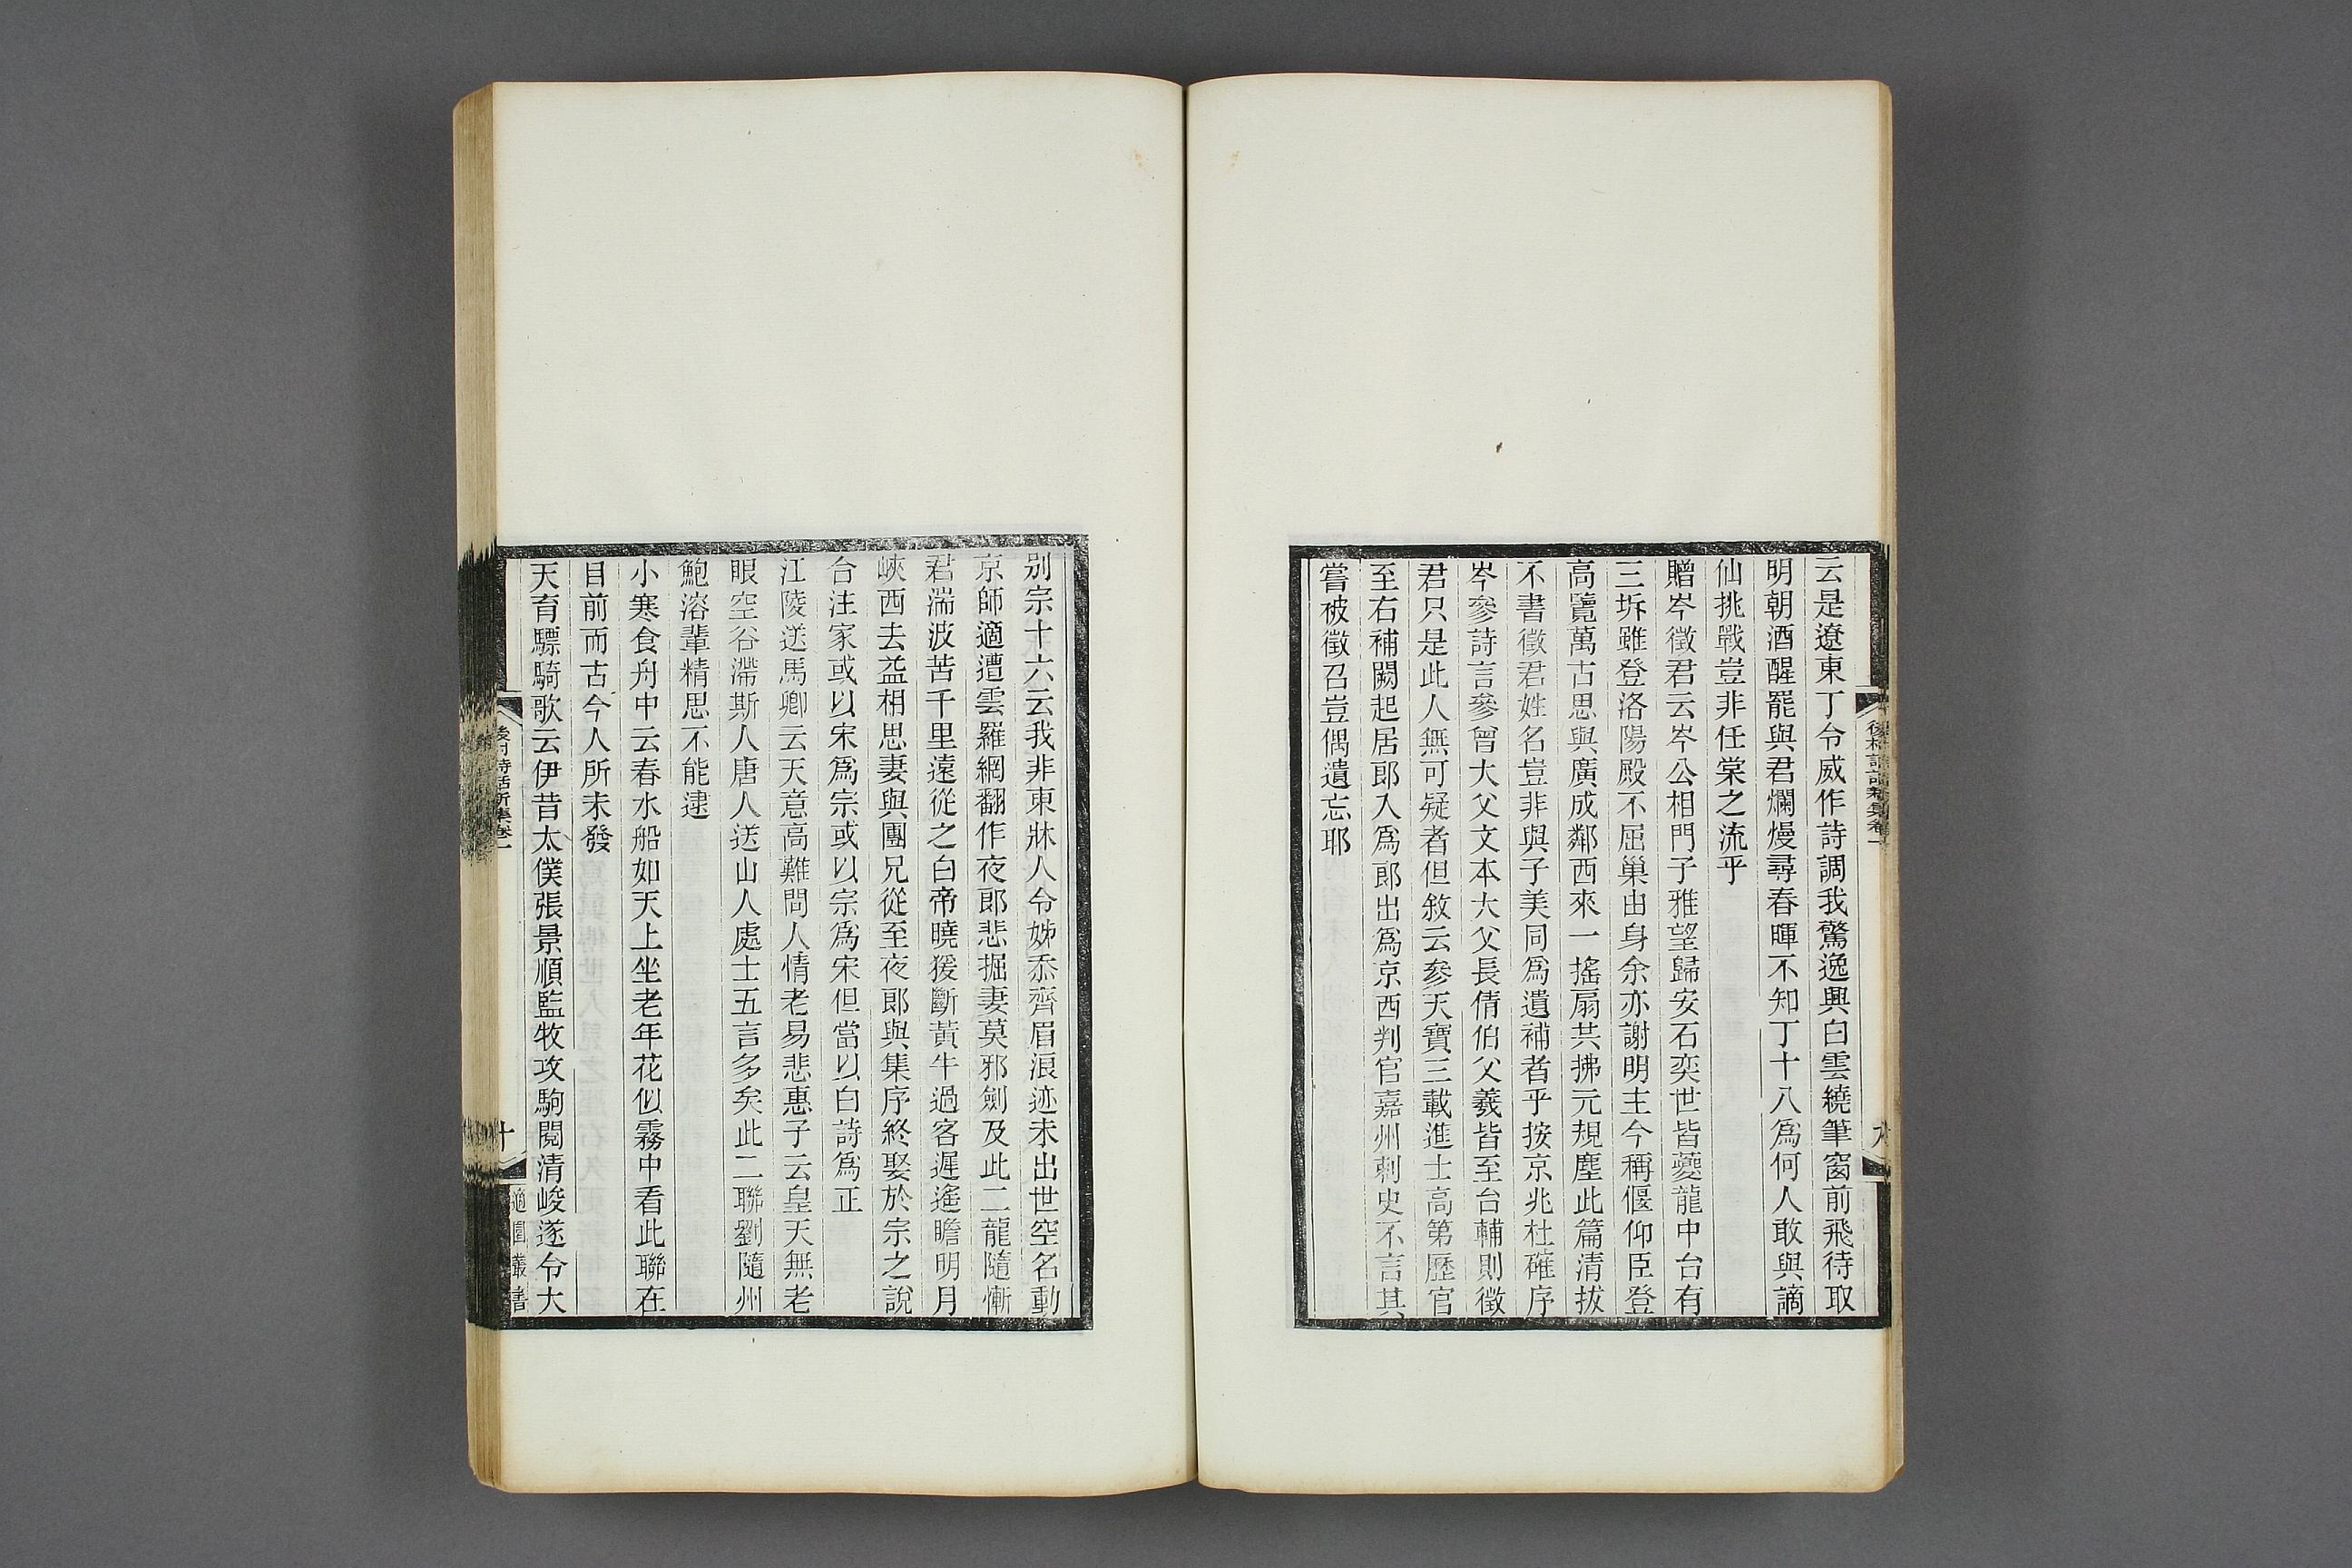 云是遼東丁令威作詩調我驚逸興白雲繞筆窗前飛待取
明朝酒醒罷與君爛熳尋春暉不知丁十八爲何人敢與謫
仙挑戰豈非任棠之流乎
贈岑徵君云岑公相門子雅望歸安石奕世皆夔龍中台有
三坼雖登洛陽殿不屈巢由身余亦謝明主今稱偃仰臣登
高覽萬古思與廣成鄰西來一搖扇共拂元規塵此篇清拔
不書徵君姓名豈非與子美同爲遺補者乎按京兆杜確序
岑參詩言參曾大父文本大父長倩伯父羲皆至台輔則徵
君只是此人無可疑者但敘云參天寶三載進士高第歷官
至右補闕起居郎入爲郎出爲京西判官嘉州刺史不言其
嘗被徵召豈偶遺忘耶
別宗十六云我非東牀人令姊忝齊眉浪迹未出世空名動
京師適遭雲羅網翻作夜郎悲掘妻莫邪劍及此二龍隨慚
君湍波苦千里遠從之白帝曉猨斷黃牛過客遲遙瞻明月
峽西去益相思妻與團兄從至夜郎與集序終娶於宗之說
合注家或以宋爲宗或以宗爲宋但當以白詩爲正
江陵送馬卿云天意高難問人情老易悲惠子云皇天無老
眼空谷滯斯人唐人送山人處士五言多矣此二聯劉隨州
鮑溶輩精思不能逮
小寒食舟中云春水船如天上坐老年花似霧中看此聯在
目前而古今人所未發
天育驃騎歌云伊昔太僕張景順監牧攻駒閱清峻遂令大
後村詩話新集卷一
十
適園叢書